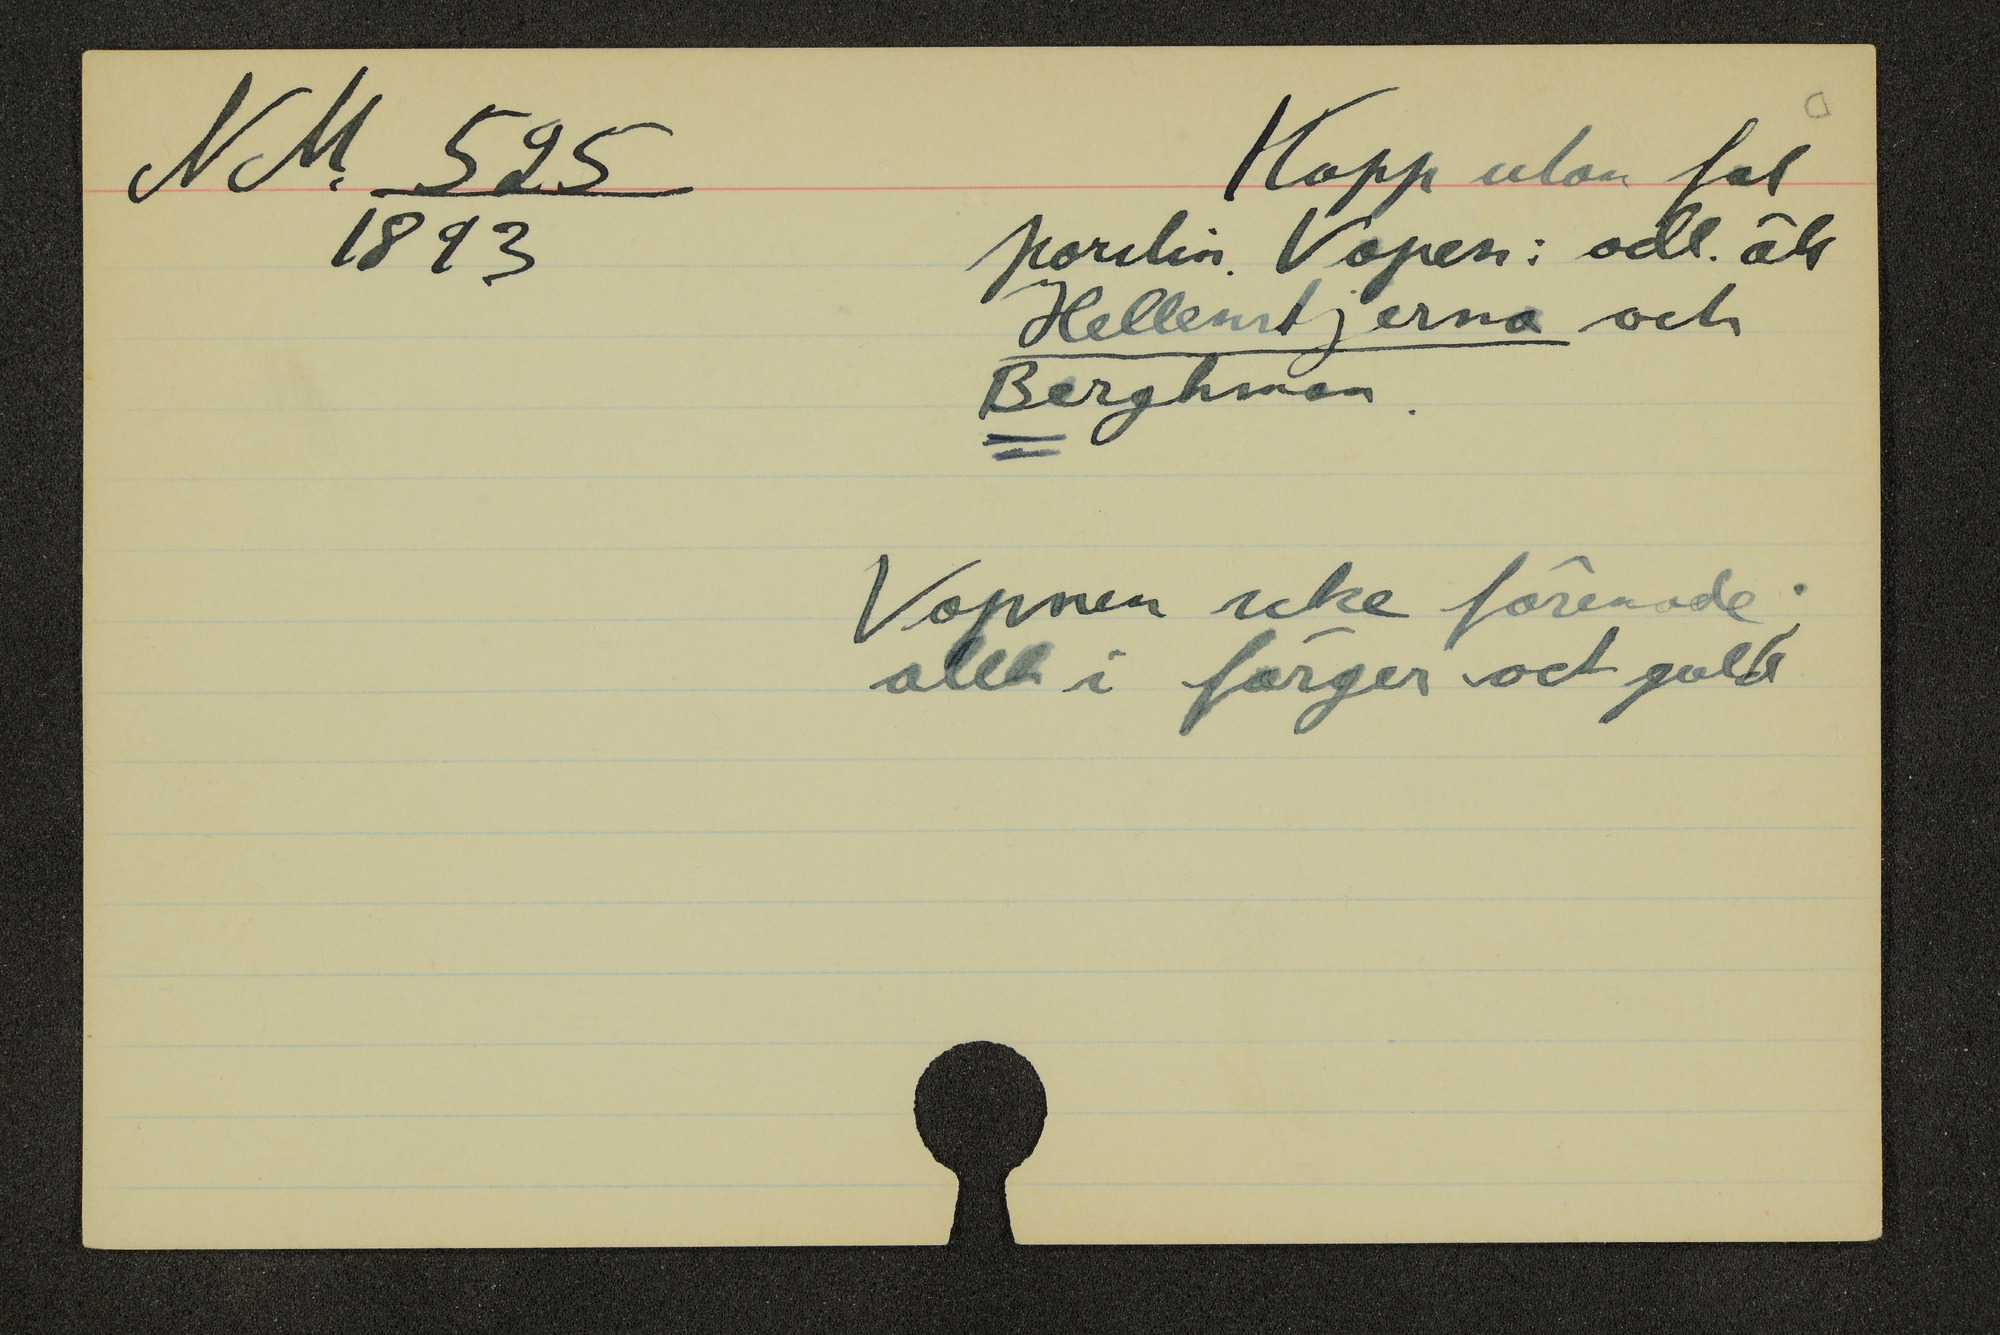 NM. 525
1893
Kopp utan fat
porslin. Vapen: adl. ätt
Hellenstjerna och
Berghman.
Vapnen icke förenade.
allt i färger och guld